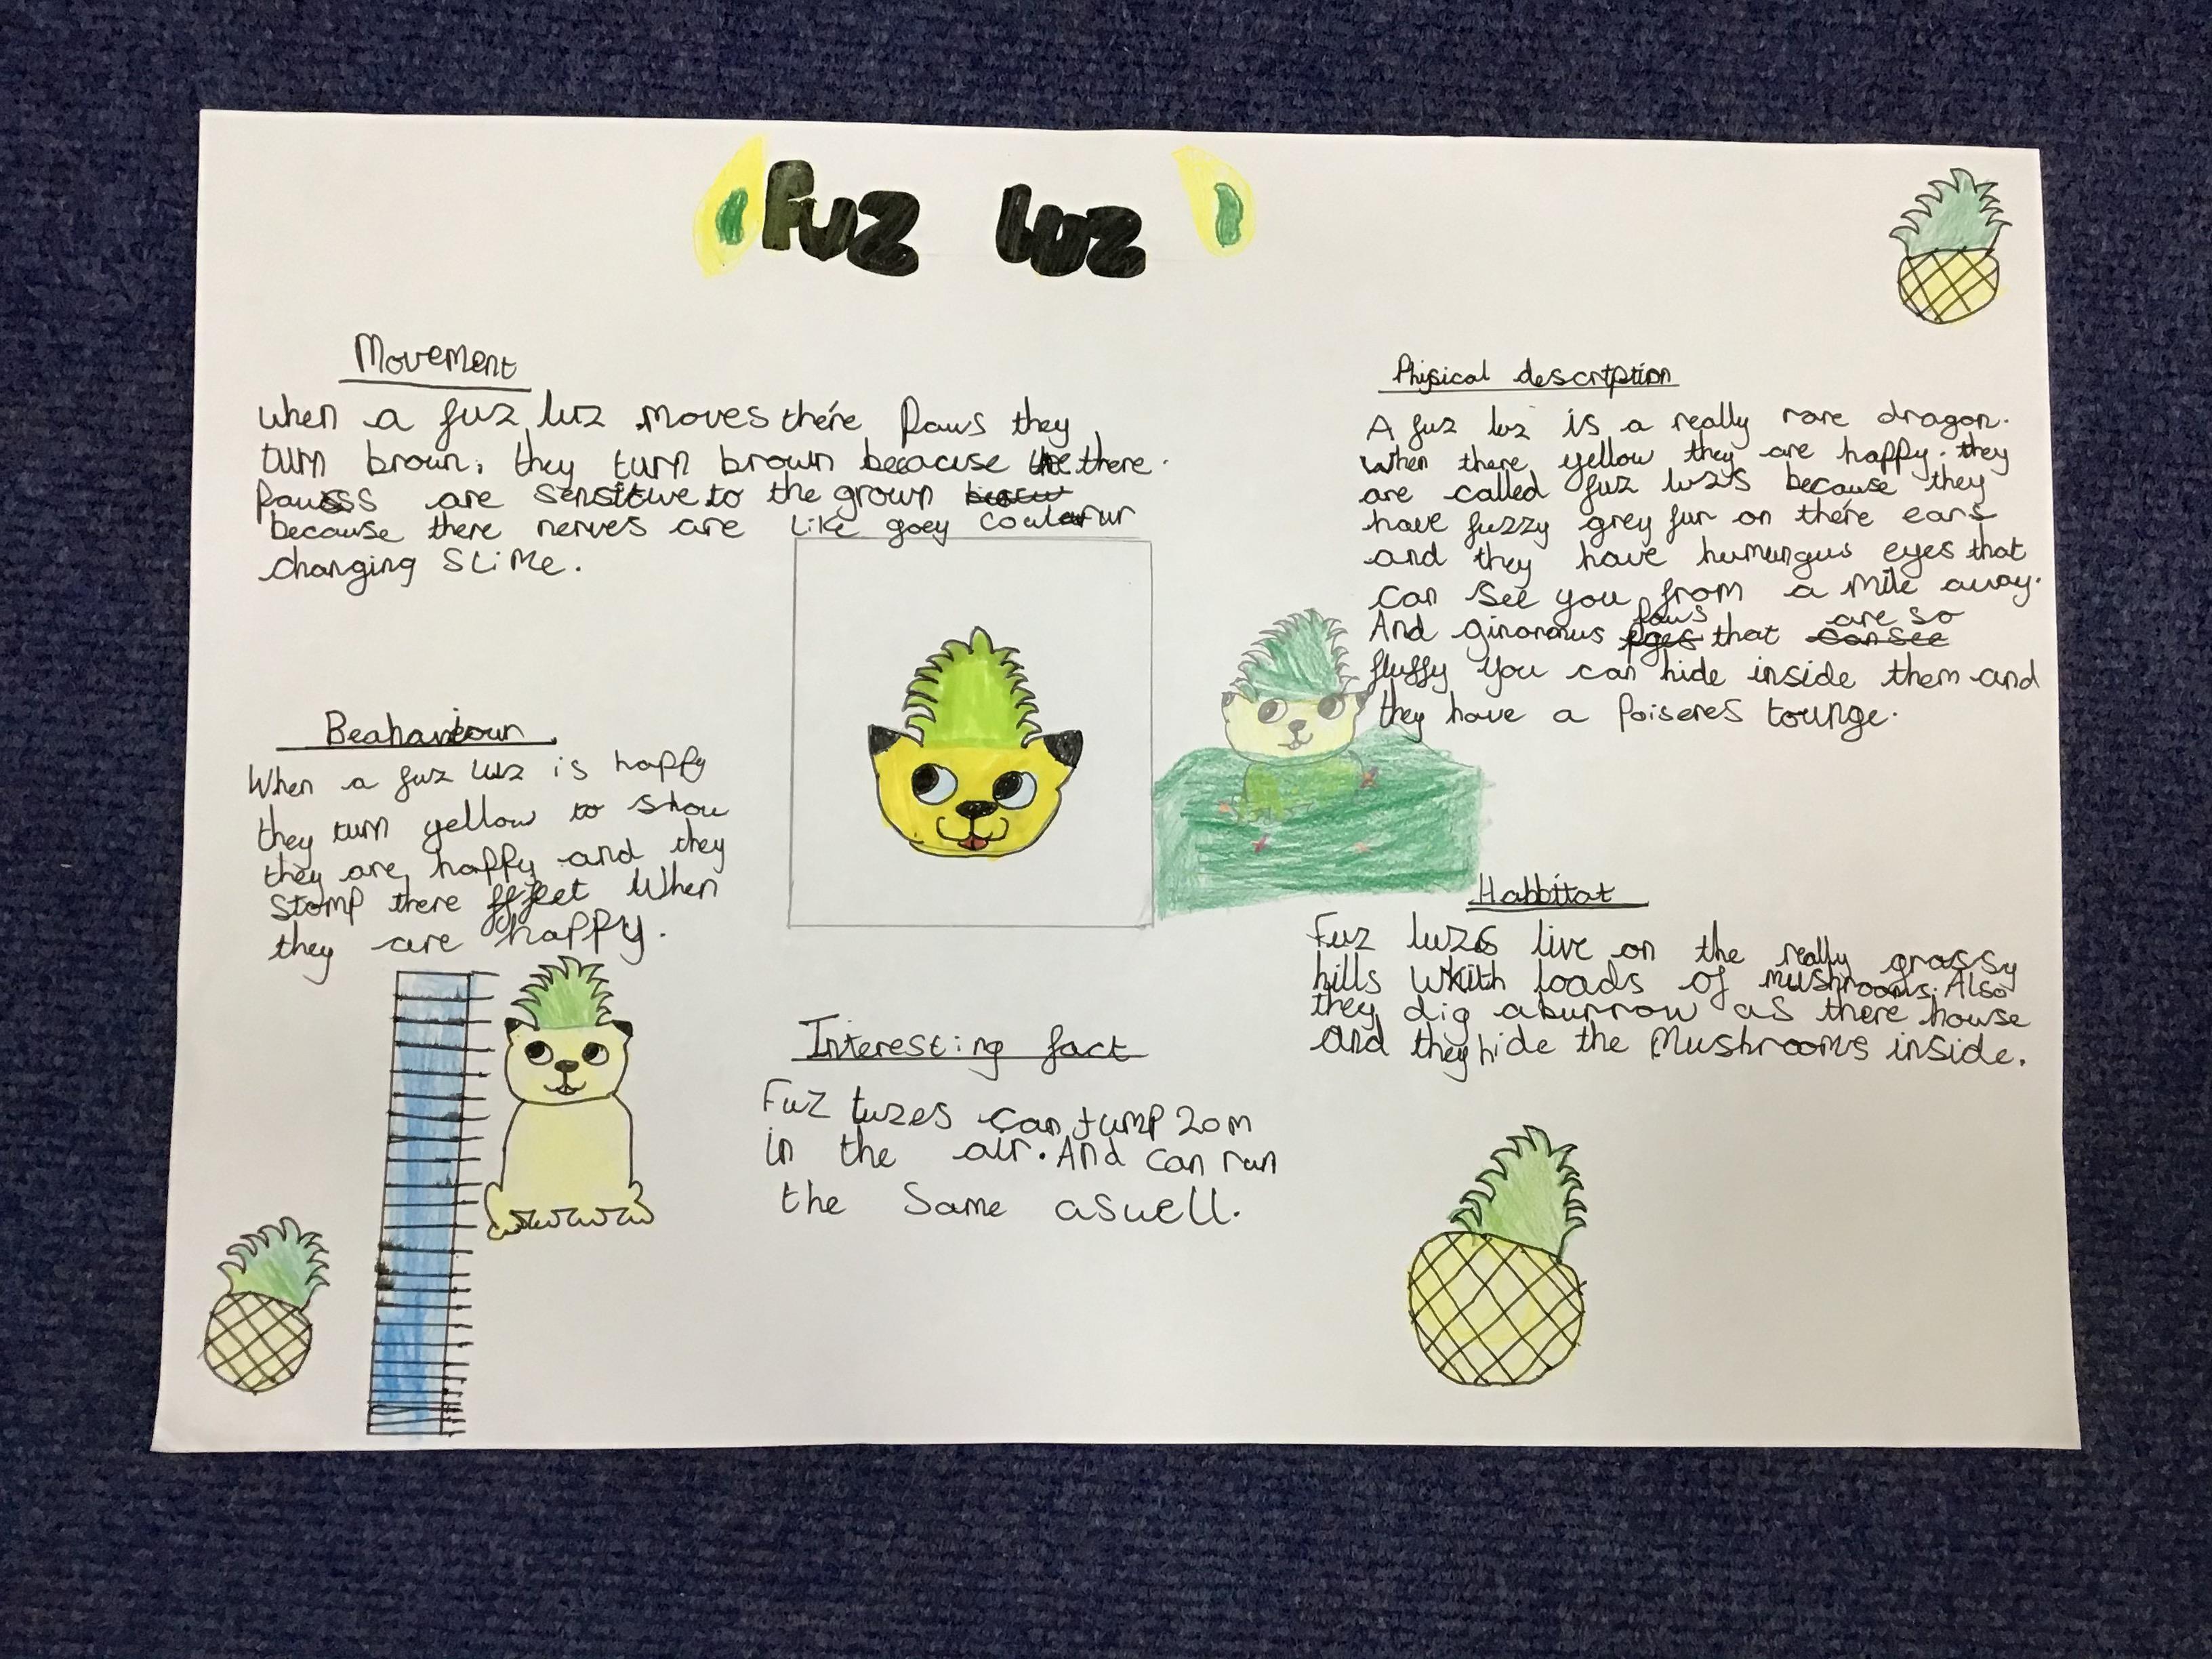 Fuz luz
Movement
When a fuz luz moves there paws they
turn brown. they turn brown beacause there
pawss are sensitive to the grown
because there nerves are like goey coulour
changing slime.
Beahaviour
When a fuz luz is happy
they turn yellow to show
they are happy and they
stomp there feet When
they are happy.
Interesting fact
Fuz luzes can jump 20m
in the air. And can run
the same aswell.
Phisical description
A fuz luz is a really rare dragon.
When there yellow they are happy. they
are called fuz luzs because they
have fuzzy grey fur on there ears
and they have humungus eyes that
can see you from a mile away.
And ginormus paws that are so
fluffy you can hide inside them and
they have a poiseres tounge.
Habbitat
Fuz luzs live on the really grassy
hills with loads of mushrooms. Also
they dig a burrow as there house
and they hide the Mushrooms inside.